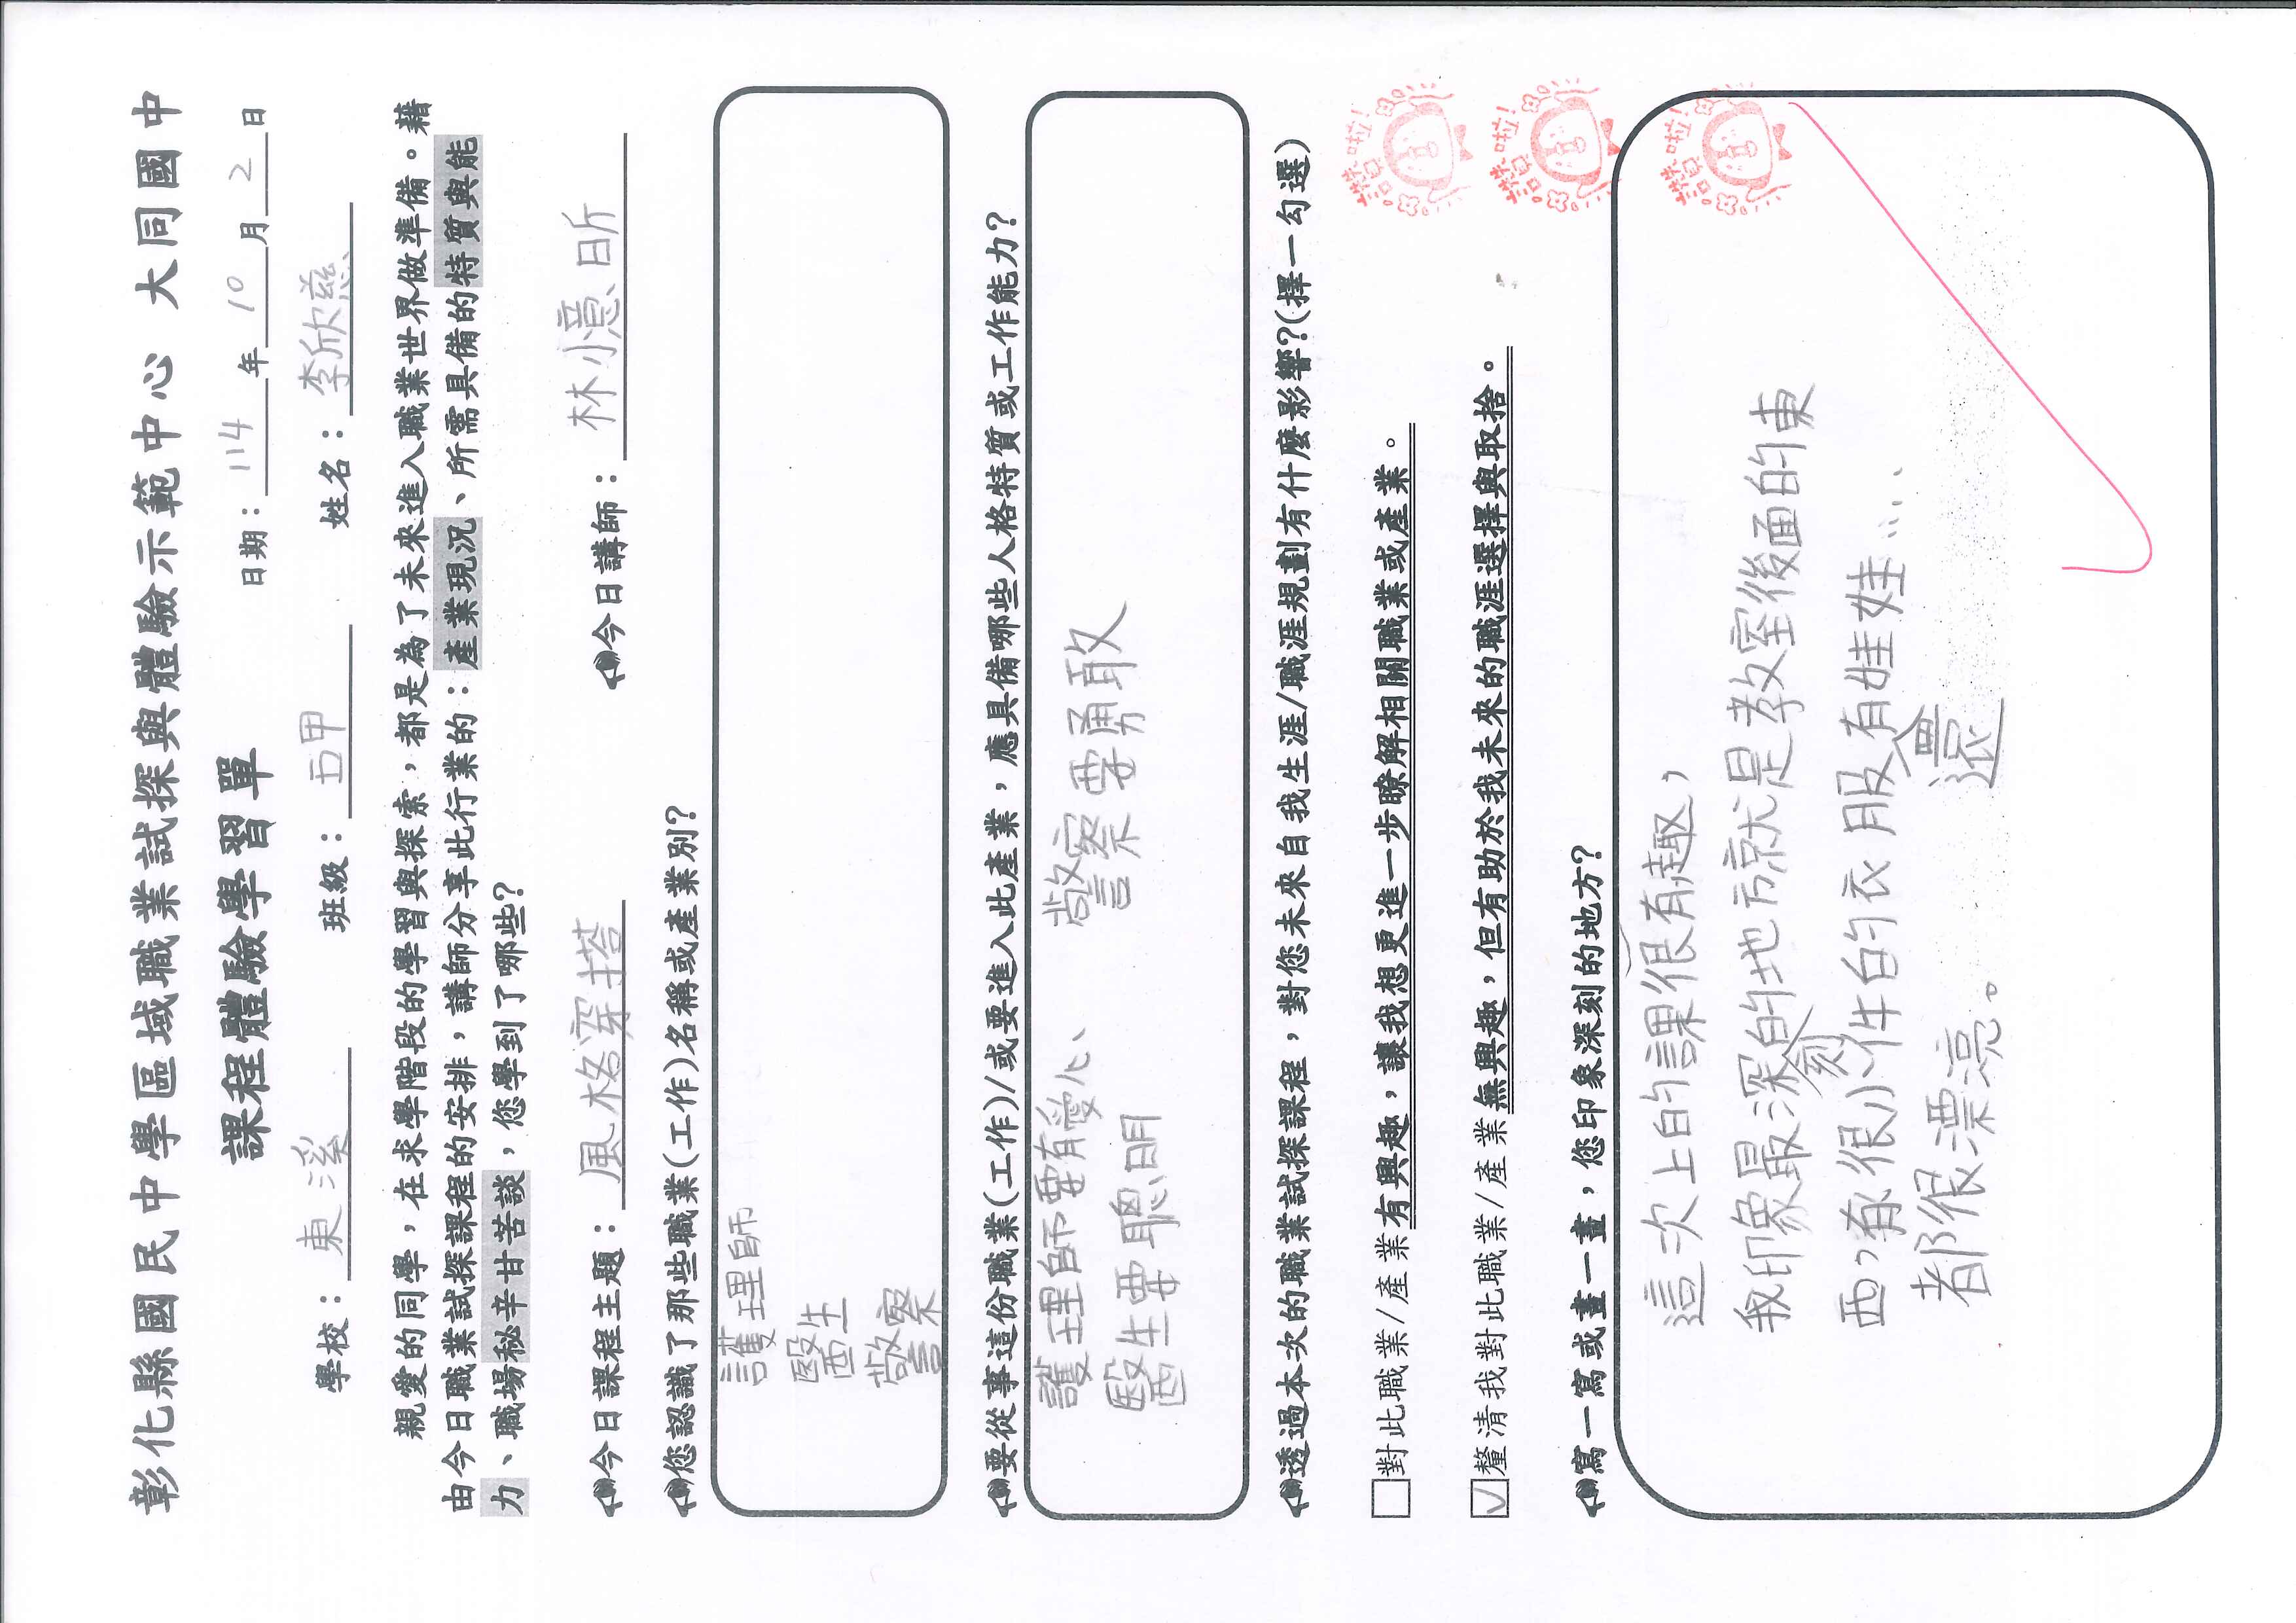 彰化縣國民中學區域職業試探與體驗示範中心 大同國中
課程體驗學習單
日期：114年10月2日
學校：東溪 班級：五甲 姓名：李欣慈
親愛的同學，在求學階段的學習與探索，都是為了未來進入職業世界做準備。藉
由今日職業試探課程的安排，講師分享此行業的：產業現況、所需具備的特質與能
力、職場秘辛甘苦談，您學到了哪些？
今日課程主題：風格穿搭 今日講師：林小憶
您認識了那些職業(工作)名稱或產業別？
護理師
醫生
警察
要從事這份職業(工作)/或要進入此產業，應具備哪些人格特質或工作能力？
護理師要有愛心、 警察要勇敢
醫生要聰明
透過本次的職業試探課程，對您未來自我生涯/職涯規劃有什麼影響？(擇一勾選)
□對此職業/產業有興趣，讓我想更進一步瞭解相關職業或產業。
☑釐清我對此職業/產業無興趣，但有助於我未來的職涯選擇與取捨。
寫一寫或畫一畫，您印象深刻的地方？
這次上的課很有趣，
我印象最深刻的地方就是教室後面的東
西，有很小件的衣服還有娃娃……
都很漂亮。
讚啦！
讚啦！
讚啦！